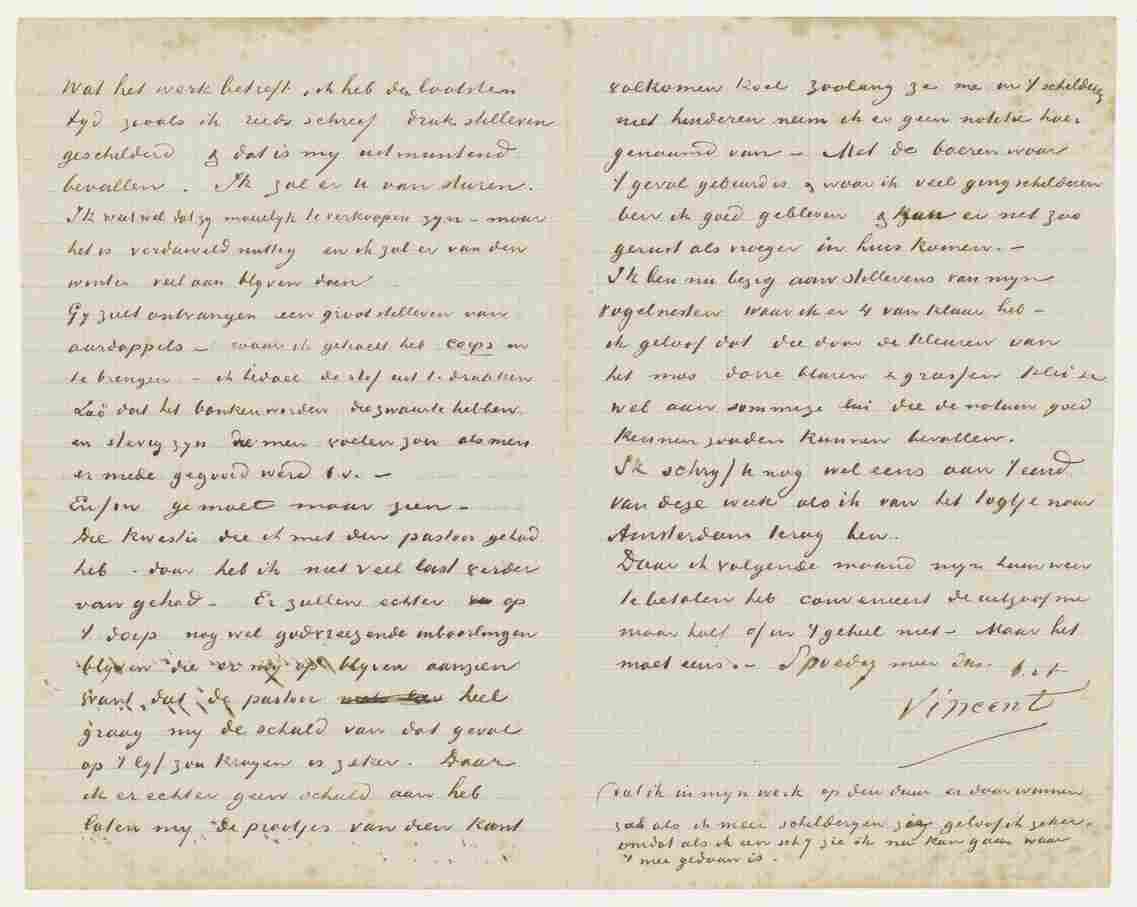 Wat het werk betreft, ik heb den laatsten
tyd zooals ik reeds schreef druk stilleven
geschilderd & dat is my uitmuntend
bevallen. Ik zal er U van sturen.
Ik weet wel dat zy moeielyk te verkoopen zyn – maar
het is verduiveld nuttig en ik zal er van den
winter veel aan blyven doen
Gy zult ontvangen een groot stilleven van
aardappels – waar ik getracht heb corps in
te brengen – ik bedoel de stof uit te drukken
Zóó dat het bonken worden die zwaarte hebben
en stevig zyn die men voelen zou als men
er mede gegooid werd b.v. –
Enfin ge moet maar zien –
Die kwestie die ik met den pastoor gehad
heb – daar heb ik niet veel last verder
van gehad – Er zullen echter op
't dorp nog wel godvreezende inboorlingen
blyven die er my op blyven aanzien
want dat de pastoor heel
graag my de schuld van dat geval
op 't lyf zou krygen is zeker. Daar
ik er echter geen schuld aan heb
laten my de praatjes van dien kant
volkomen koel zoolang ze me in 't schilderen
niet hinderen neem ik er geen notitie hoe-
genaamd van – Met de boeren waar
't geval gebeurd is & waar ik veel ging schilderen
ben ik goed gebleven & kan er net zoo
gerust als vroeger in huis komen. –
Ik ben nu bezig aan stillevens van myn
vogelnesten waar ik er 4 van klaar heb –
ik geloof dat die door de kleuren van
het mos dorre blaren & grassen klei &c
wel aan sommige lui die de natuur goed
kennen zouden kunnen bevallen.
Ik schryf U nog wel eens aan 't eind
van deze week als ik van het togtje naar
Amsterdam terug ben.
Daar ik volgende maand myn huur weer
te betalen heb convenieert de uitgaaf me
maar half of in 't geheel niet – Maar het
moet eens. – Spoedig meer dus. b. à t.
Vincent
dat ik in myn werk op den duur er door winnen
zal als ik meer schilderyen zie geloof ik zeker.
omdat als ik een schij zie ik na kan gaan waar
't mee gedaan is.